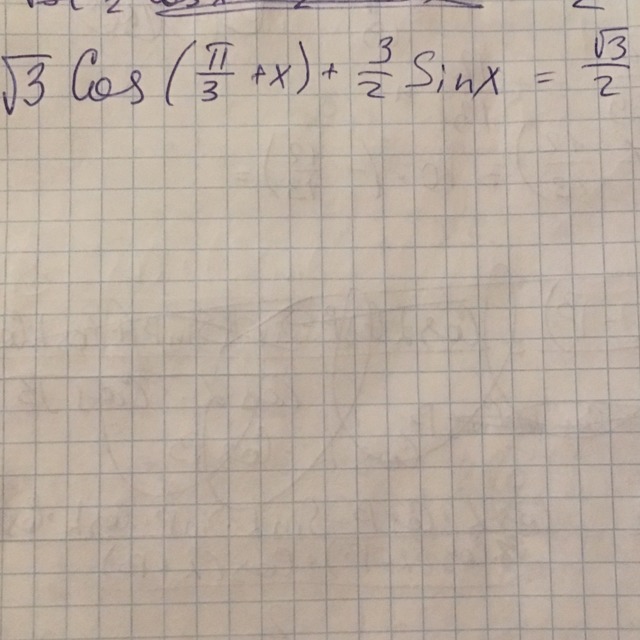 √3 Cos (π/3 + x) + 3/2 Sinx = √3/2